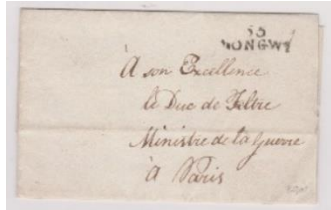 55
LONGWY
à son Excellence
le Duc de Feltre
Ministre de la Guerre
à Paris